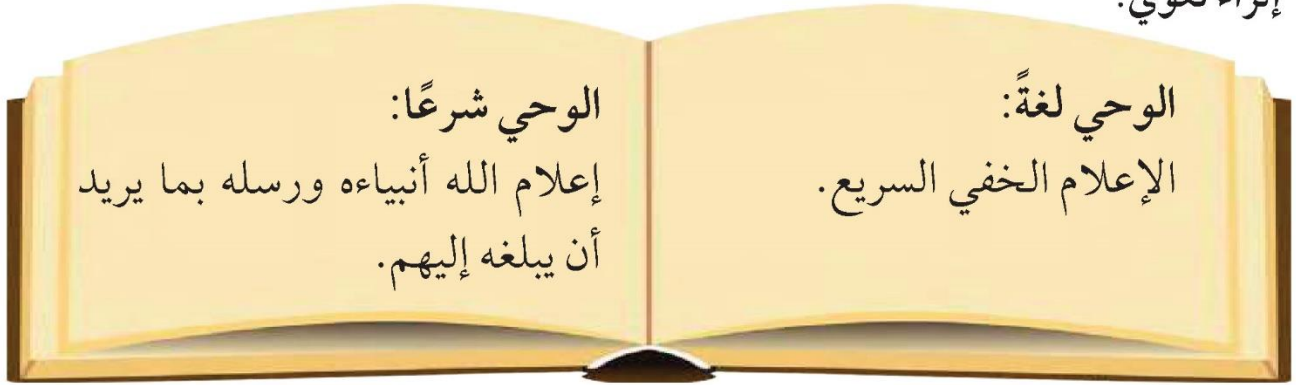 إثراء لغوي:
الوحي لغةً:
الإعلام الخفي السريع.
الوحي شرعًا:
إعلام الله أنبياءه ورسله بما يريد
أن يبلغه إليهم.